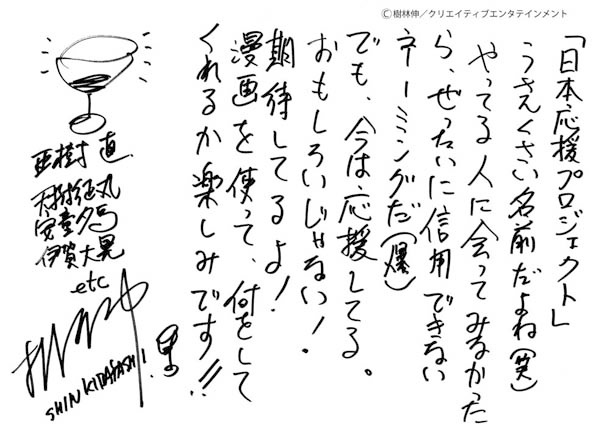 Ⓒ樹林伸／クリエイティブエンタテインメント
「日本応援プロジェクト」
うさんくさい名前だよね(笑)
やってる人に会ってみなかった
ら、ぜったいに信用できない
ネーミングだ(爆)
でも、今は応援してる。
おもしろいじゃない！
期待してるよ！
漫画を使って、何をして
くれるか楽しみです!!
亜樹 直
天樹征丸
安童夕馬
伊賀大晃
etc
SHIN KIBAYASHI